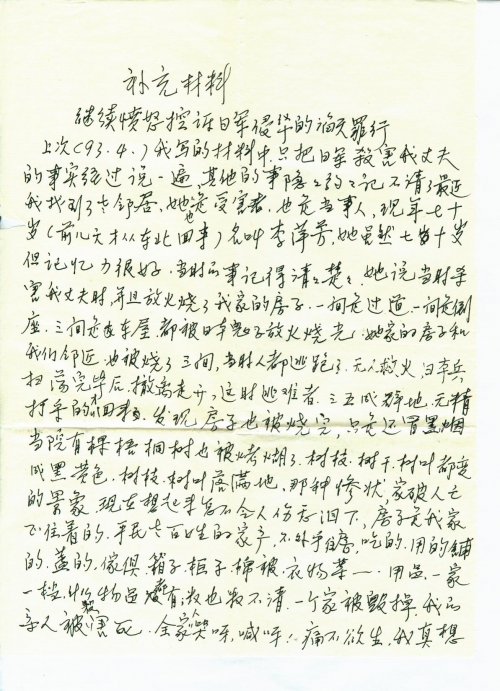 补充材料
继续愤怒控诉日军侵华的滔天罪行
上次(93.4.)我写的材料中只把日军杀害我丈夫
的事实经过说一遍,其他的事隐々约々记不清了最近
我找到了老邻居,她也是受害者,也是当事人,现年七十
岁(前几天才从东北回来)名叫李萍芳,她虽然七十岁
但记忆力很好.当时的事记得清々楚々.她说当时杀
害我丈夫时,并且放火烧了我家的房子.一间是过道.一间是倒
座.三间是东屋都被日本鬼子放火烧光.她家的房子和
我们邻近.也被烧了三间,当时人都逃跑了.无人救火,日本兵
扫荡完毕后.撤离走开,这时逃难者.三五成群地.无精
打采的回来.发现房子也被烧完,只是还冒黑烟
当院有棵梧桐树也被烤糊了.树枝.树干.树叶都变
成黑黄色.树枝.树叶落满地,那种惨状,家破人亡
的景象 现在想起来怎不令人伤心泪下,房子是我家
住着的.平民老百姓的家产,不外乎住房,吃的.用的铺
的.盖的.傢俱 箱子.柜子棉被.衣物等一.用品.一家
一
一个家被毁掉.我的
亲人被害死.全家哭呀,喊呀!痛不欲生.我真想